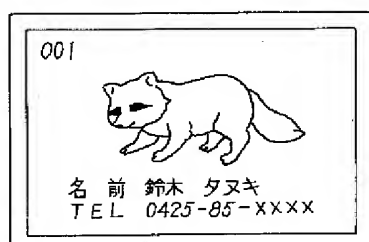 001
名前 鈴木 タヌキ
TEL 0425-85-XXXX